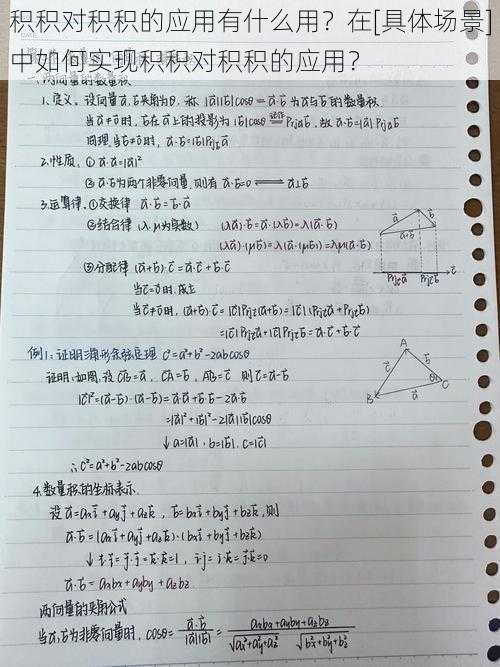 积积对积积的应用有什么用？在[具体场景]
中如何实现积积对积积的应用？
DATE
一、两向量的数量积
1、定义。设向量a⃗,b⃗夹角为θ，称 |a⃗||b⃗|cosθ = a⃗·b⃗ 为a⃗与b⃗的数量积
当a⃗≠0⃗时，b⃗在a⃗上的投影为|b⃗|cosθ 记作 Prja⃗b⃗，故a⃗·b⃗=|a⃗|Prja⃗b⃗
同理，当b⃗≠0⃗时，a⃗·b⃗=|b⃗|Prjb⃗a⃗
2.性质。① a⃗·a⃗=|a⃗|²
② a⃗·b⃗为两个非零向量，则有 a⃗·b⃗=0 ⟺ a⃗⊥b⃗
3.运算律。①交换律 a⃗·b⃗=b⃗·a⃗
②结合律(λ,μ为实数) (λa⃗)·b⃗=a⃗·(λb⃗)=λ(a⃗·b⃗)
(λa⃗)·(μb⃗)=λ(a⃗·(μb⃗))=λμ(a⃗·b⃗)
③分配律 (a⃗+b⃗)·c⃗=a⃗·c⃗+b⃗·c⃗
当c⃗=0⃗时，成立
当c⃗≠0⃗时，(a⃗+b⃗)·c⃗=|c⃗|Prjc⃗(a⃗+b⃗)=|c⃗|(Prjc⃗a⃗+Prjc⃗b⃗)
=|c⃗|Prjc⃗a⃗+|c⃗|Prjc⃗b⃗=a⃗·c⃗+b⃗·c⃗
a⃗
b⃗
a⃗+b⃗
c⃗
Prjc⃗a⃗ Prjc⃗b⃗
例1：证明三角形余弦定理 c²=a²+b²-2abcosθ
证明：如图，设CB⃗=a⃗，CA⃗=b⃗，AB⃗=c⃗ 则c⃗=a⃗-b⃗
|c⃗|²=(a⃗-b⃗)·(a⃗-b⃗)=a⃗·a⃗+b⃗·b⃗-2a⃗·b⃗
=|a⃗|²+|b⃗|²-2|a⃗||b⃗|cosθ
↓ a=|a⃗|，b=|b⃗|，c=|c⃗|
∴c²=a²+b²-2abcosθ
A
b⃗
c⃗
θ
C
B
a⃗
4.数量积的坐标表示
设a⃗=axi⃗+ayj⃗+azk⃗，b⃗=bxi⃗+byj⃗+bzk⃗，则
a⃗·b⃗=(axi⃗+ayj⃗+azk⃗)·(bxi⃗+byj⃗+bzk⃗)
↓ i⃗·i⃗=j⃗·j⃗=k⃗·k⃗=1，i⃗·j⃗=j⃗·k⃗=k⃗·i⃗=0
a⃗·b⃗=axbx+ayby+azbz
两向量的夹角公式
当a⃗,b⃗为非零向量时，cosθ=a⃗·b⃗/|a⃗||b⃗|=(axbx+ayby+azbz)/(√(ax²+ay²+az²) √(bx²+by²+bz²))